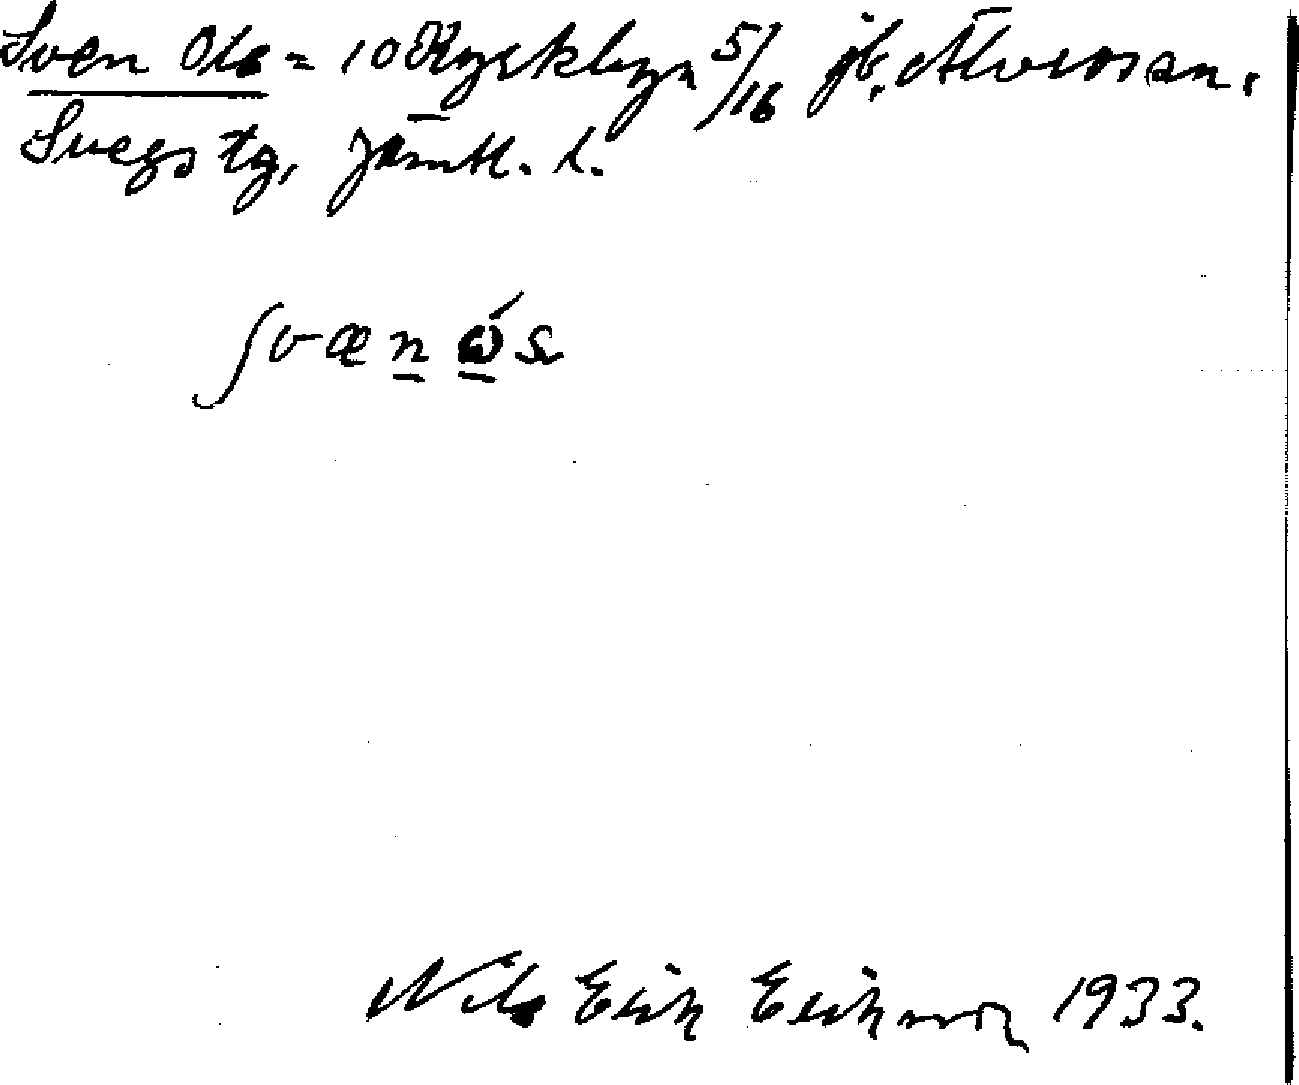 Sven Ols = 10 Ryeklegn 5/16 jb. Älvros sn.
Svegs tg, Jämtl. l.
ʃvæn ώs
Nils Erik Eriksson 1933.